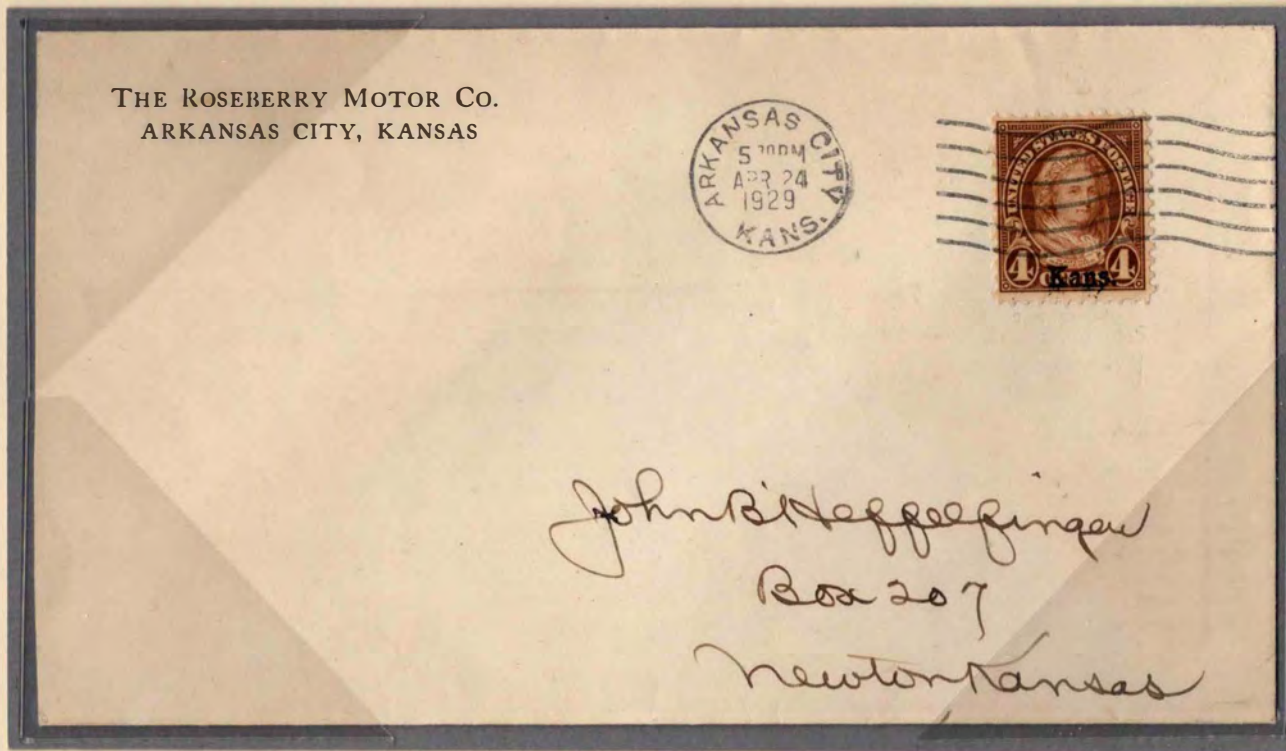 THE ROSEBERRY MOTOR CO.
ARKANSAS CITY, KANSAS
ARKANSAS CITY
5 30PM
APR 24
1929
KANS.
UNITED STATES POSTAGE
4 CENTS 4
Kans.
John B. Heffelfinger
Box 207
Newton Kansas